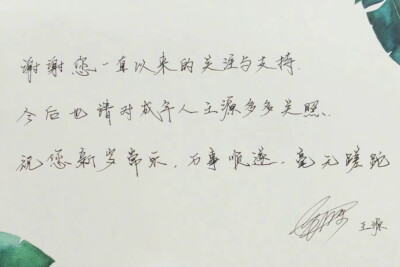 谢谢您一直以来的关注与支持.
今后也请对成年人王源多多关照.
祝您新岁常乐，万事顺遂，毫无蹉跎
王源